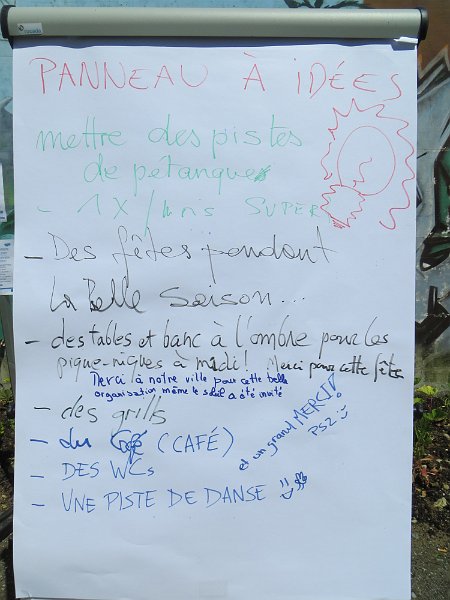 PANNEAU À IDÉES
mettre des pistes
de pétanque
- 1X/mois SUPER
- Des fêtes pendant
la Belle Saison...
- des tables et banc à l'ombre pour les
pique-niques à midi! Merci pour cette fête
Merci à notre ville pour cette belle
organisation même le soleil a été invité
- des grills
- du Café (CAFÉ)
et un grand MERCI!
PS2 :)
- DES WCs
- UNE PISTE DE DANSE